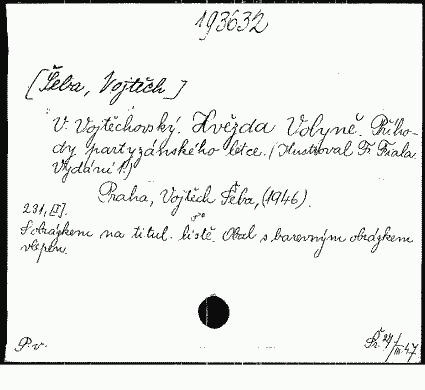 193632
[Šeba, Vojtěch]
V. Vojtěchovský. Hvězda Volyně. Přího-
dy partyzánského letce. (Ilustroval Fr. Fiala.
Vydání 1.)
Praha, Vojtěch Šeba, (1946).
8°
231, [I].
S obrázkem na titul. listě. Obal s barevným obrázkem
vlepen.
P. v.
24/
III. 47.